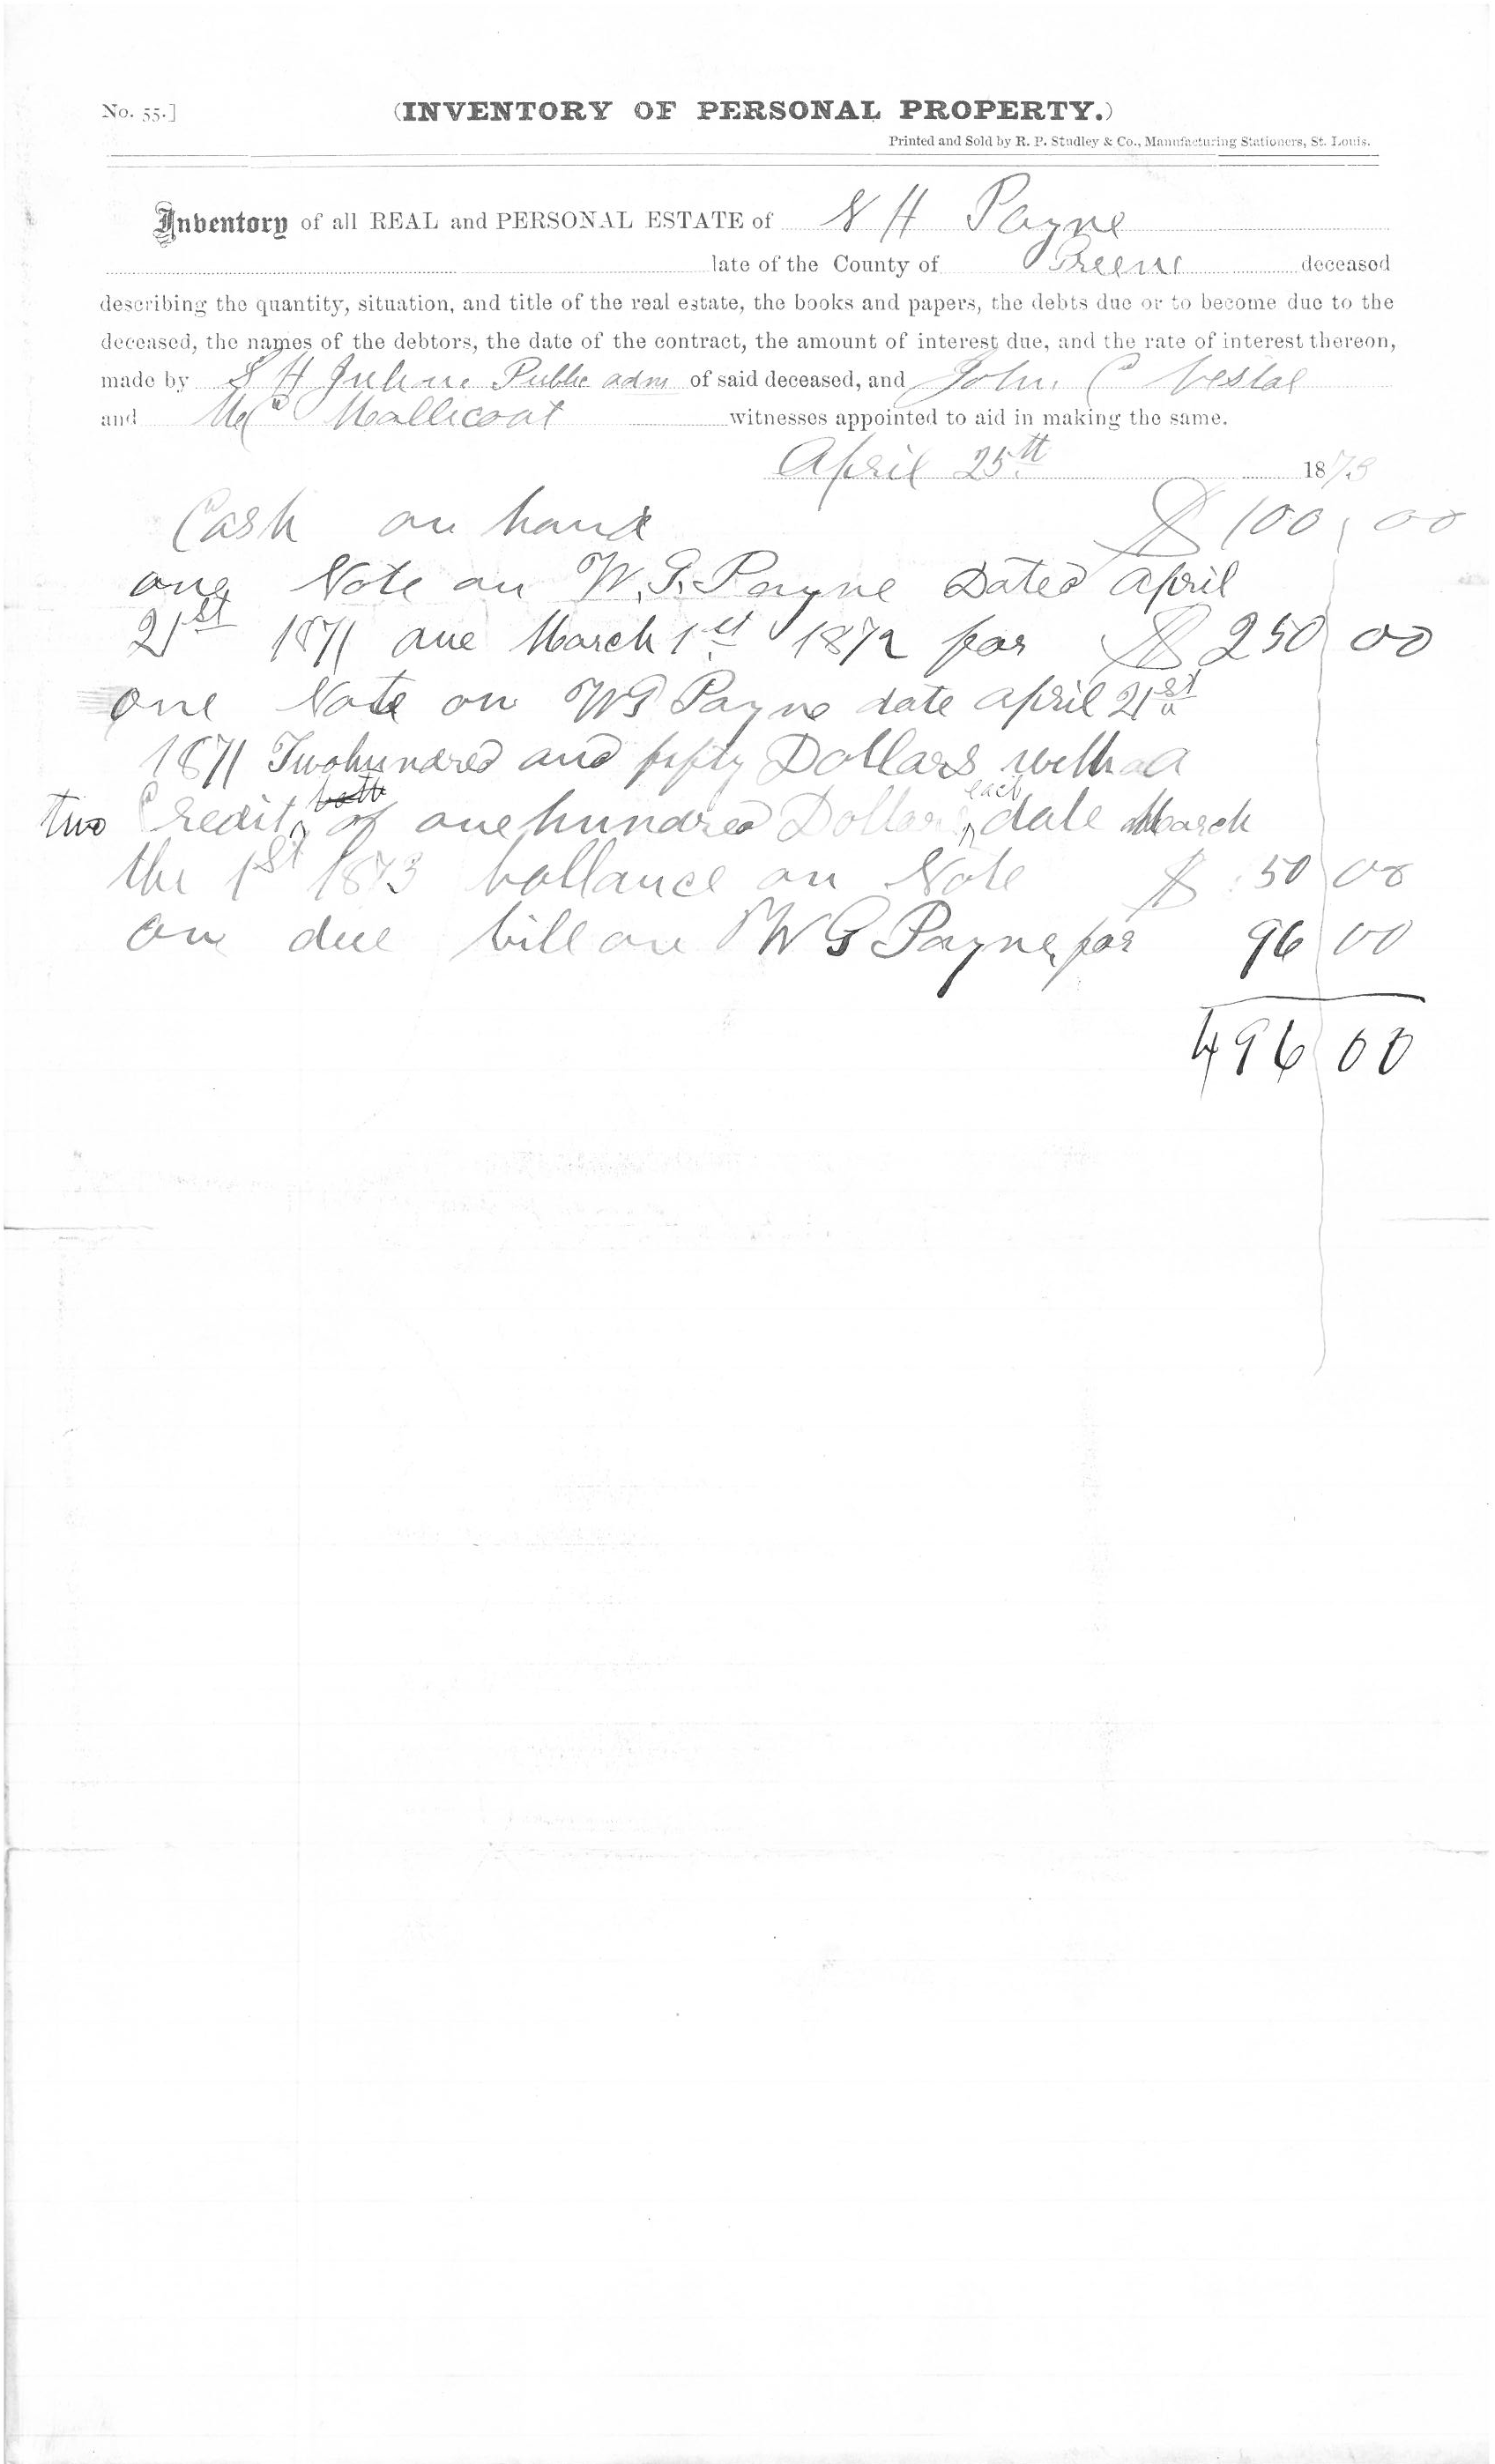 No. 55.]
(INVENTORY OF PERSONAL PROPERTY.)
Printed and Sold by R. P. Studley & Co., Manufacturing Stationers, St. Louis.
Inventory of all REAL and PERSONAL ESTATE of N H Payne
late of the County of Greene deceased
describing the quantity, situation, and title of the real estate, the books and papers, the debts due or to become due to the
deceased, the names of the debtors, the date of the contract, the amount of interest due, and the rate of interest thereon,
made by S H Julian Public adm of said deceased, and John C Vestal
and Mallicoat witnesses appointed to aid in making the same.
April 25th 1873
Cash on hand $ 100 00
one Note on W. G. Payne Dated April
21st 1871 due March 1st 1872 for $ 250 00
one Note on W G Payne date april 21st
1871 Two hundred and fifty Dollars with a
two Credit both of one hundred Dollars each date March
the 1st 1873 ballance on Note $ 50 00
on due bill on W G Payne for 96 00
496 00